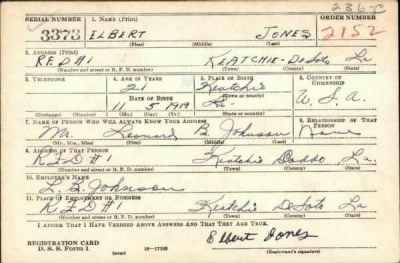 236-C
SERIAL NUMBER 1. NAME (Print) ORDER NUMBER
3373 ELBERT JONES 2152
(First) (Middle) (Last)
2. ADDRESS (Print)
R.F.D #1 KEATCHIE- DeSoto La
(Number and street or R. F. D. number) (Town) (County) (State)
3. TELEPHONE 4. AGE IN YEARS 5. PLACE OF BIRTH 6. COUNTRY OF CITIZENSHIP
21 Keatchie
DATE OF BIRTH (Town or county)
11 5 1919 La. U.S.A.
(Exchange) (No.) (Mo.) (Day) (Yr.) (State or country)
7. NAME OF PERSON WHO WILL ALWAYS KNOW YOUR ADDRESS 8. RELATIONSHIP OF THAT PERSON
Mr. Leonard B Johnson None
(Mr., Mrs., Miss) (First) (Middle) (Last)
9. ADDRESS OF THAT PERSON
R.F.D #1 Keatchie La.
(Number and street or R. F. D. number) (Town) (County) (State)
10. EMPLOYER'S NAME
L. B. Johnson
11. PLACE OF EMPLOYMENT OR BUSINESS
R.F.D #1 Keatchie DeSoto La
(Number and street or R. F. D. number) (Town) (County) (State)
I AFFIRM THAT I HAVE VERIFIED ABOVE ANSWERS AND THAT THEY ARE TRUE.
REGISTRATION CARD
D. S. S. Form 1 16—17105 Elbert Jones
(Registrant's signature)